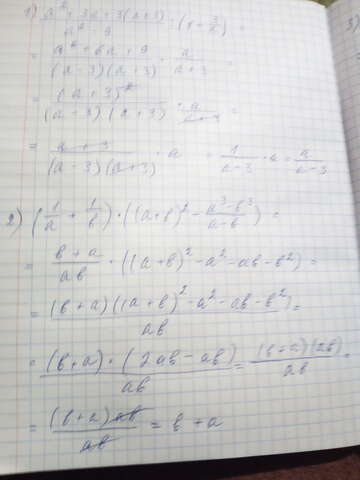 1) (a² + 3a + 3(a+3))/(a² - 9) : (1 + 3/a) =
= (a² + 6a + 9)/((a-3)(a+3)) · a/(a+3) =
= (a+3)²/((a-3)(a+3)) · a/(a+3) =
= (a+3)/((a-3)(a+3)) · a = 1/(a-3) · a = a/(a-3)
2) (1/a + 1/b) · ((a+b)² - (a³-b³)/(a-b)) =
= (b+a)/(ab) · ((a+b)² - a² - ab - b²) =
= ((b+a)((a+b)² - a² - ab - b²))/(ab) =
= ((b+a) · (2ab - ab))/(ab) = ((b+a)(ab))/(ab) =
= ((b+a)ab)/(ab) = b + a